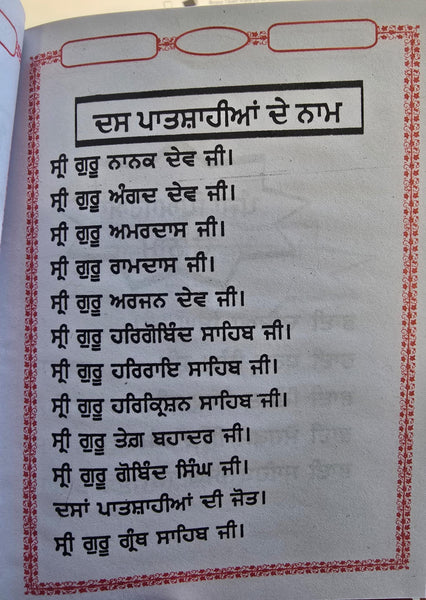 ਦਸ ਪਾਤਸ਼ਾਹੀਆਂ ਦੇ ਨਾਮ
ਸ੍ਰੀ ਗੁਰੂ ਨਾਨਕ ਦੇਵ ਜੀ।
ਸ੍ਰੀ ਗੁਰੂ ਅੰਗਦ ਦੇਵ ਜੀ।
ਸ੍ਰੀ ਗੁਰੂ ਅਮਰਦਾਸ ਜੀ।
ਸ੍ਰੀ ਗੁਰੂ ਰਾਮਦਾਸ ਜੀ।
ਸ੍ਰੀ ਗੁਰੂ ਅਰਜਨ ਦੇਵ ਜੀ।
ਸ੍ਰੀ ਗੁਰੂ ਹਰਿਗੋਬਿੰਦ ਸਾਹਿਬ ਜੀ।
ਸ੍ਰੀ ਗੁਰੂ ਹਰਿਰਾਇ ਸਾਹਿਬ ਜੀ।
ਸ੍ਰੀ ਗੁਰੂ ਹਰਿਕ੍ਰਿਸ਼ਨ ਸਾਹਿਬ ਜੀ।
ਸ੍ਰੀ ਗੁਰੂ ਤੇਗ਼ ਬਹਾਦਰ ਜੀ।
ਸ੍ਰੀ ਗੁਰੂ ਗੋਬਿੰਦ ਸਿੰਘ ਜੀ।
ਦਸਾਂ ਪਾਤਸ਼ਾਹੀਆਂ ਦੀ ਜੋਤ।
ਸ੍ਰੀ ਗੁਰੂ ਗ੍ਰੰਥ ਸਾਹਿਬ ਜੀ।